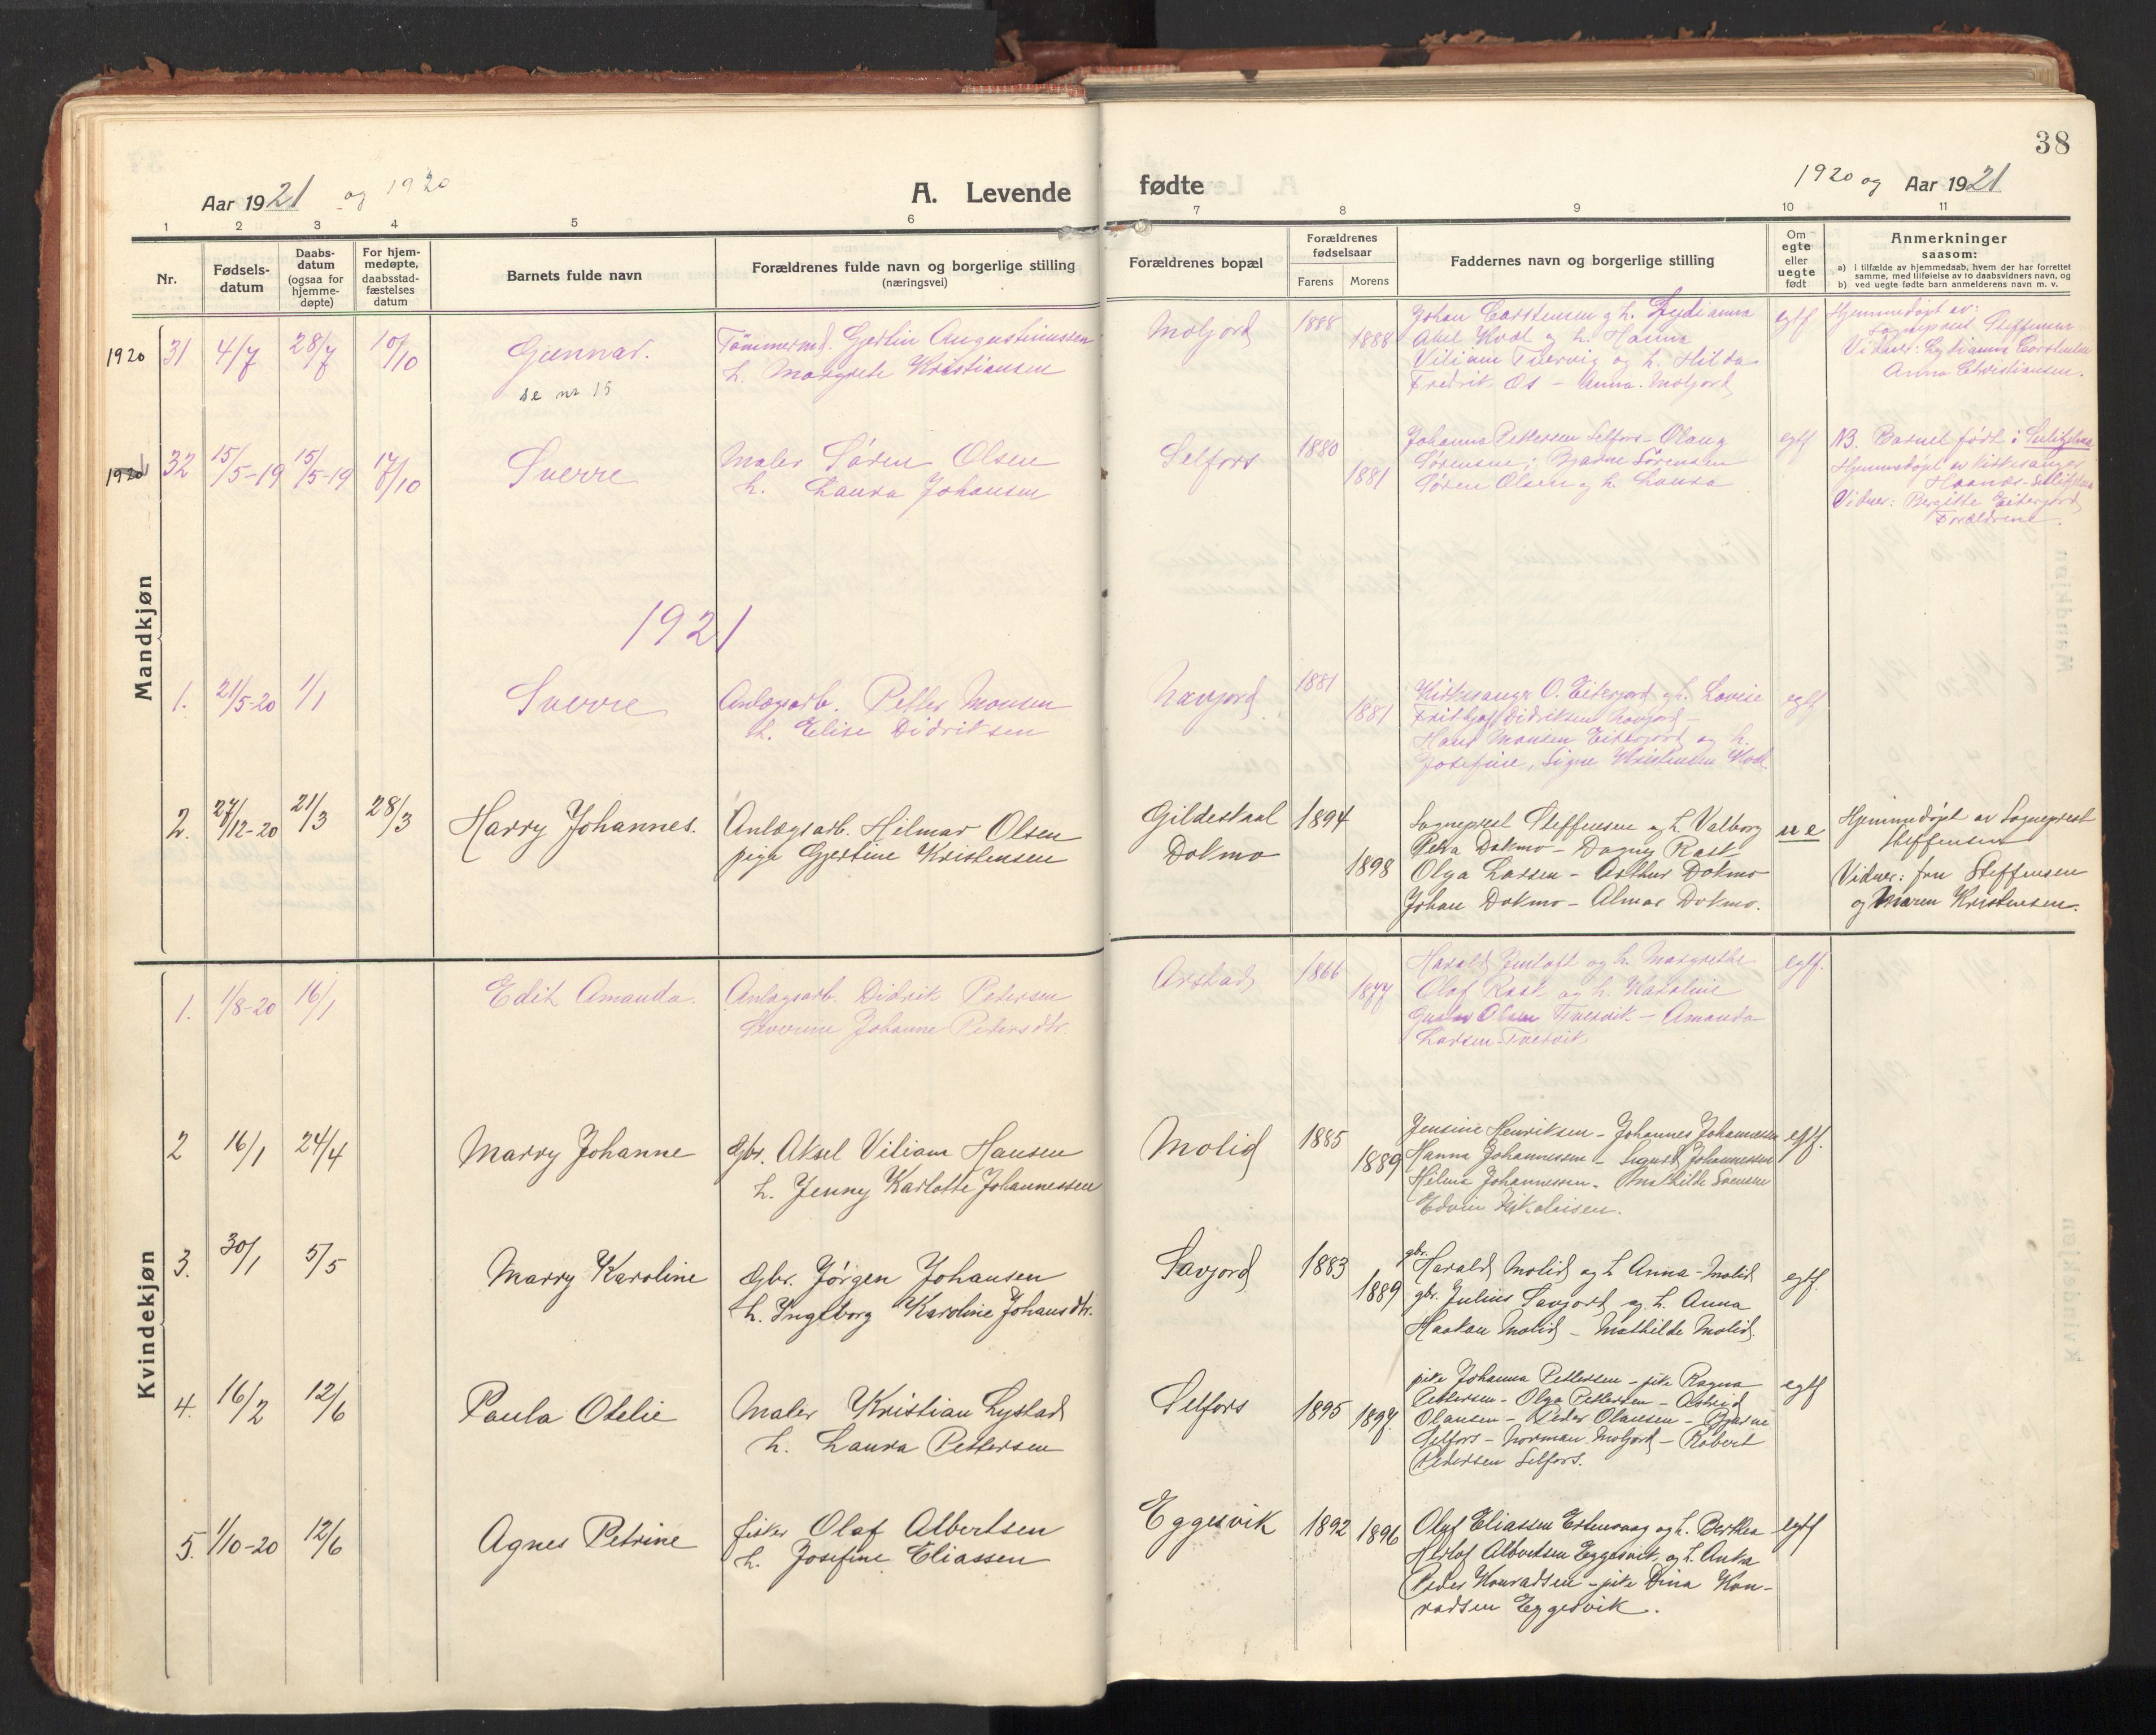 38
Aar 1921 og 1920
A. Levende fødte
1920 og Aar 1921
1 2 3 4 5 6 7 8 9 10 11
Nr.
Fødsels-
datum
Daabs-
datum
(ogsaa for
hjemme-
døpte)
For hjem-
medøpte,
daabsstad-
fæstelses
datum
Barnets fulde navn
Forældrenes fulde navn og borgerlige stilling
(næringsvei)
Forældrenes bopæl
Forældrenes
fødselsaar
Farens Morens
Faddernes navn og borgerlige stilling
Om
egte
eller
uegte
født
Anmerkninger
saasom:
a) i tilfælde av hjemmedaab, hvem der har forrettet
samme, med tilføielse av to daabsvidners navn, og
b) ved uegte fødte barn anmelderens navn m. v.
Mandkjøn
1920 31 4/7 28/7 10/10 Gunnar.
se nr 15
Tømmermd. Gjertin Augustinussen
h. Margrete Kristiansen
Moljord 1888 1888
Johan Carstensen og h. Lydianna
Aksel Kval og h. Hanna
Viliam Tvervig og h. Hilda
Fredrik Os - Anna Moljord
egtf
Hjemmedøpt av:
Sogneprest Steffensen
Vidner: Lydianna Carstensen
Anna Christiansen.
1920 32 15/5-19 15/5-19 17/10 Sverre
Maler Søren Olsen
h. Laura Johansen
Selfors 1880 1881
Johanna Pettersen Selfors - Olaug
Sørensen; Bjarne Sørensen
Søren Olsen og h. Laura
egtf
NB. Barnet født i Sulitjelma
Hjemmedøpt av kirkesanger
Haanæs - Sulitjelma
Vidner: Bergitte Eiterjord
Forældrene.
1921
1. 21/5-20 1/1 Sverre
Anlægsarb. Petter Monsen
h. Elise Didriksen
Navjord 1881 1881
Kirkesanger O. Eiterjord og h. Lovise
Frithjof Didriksen Navjord -
Hans Monsen Eiterjord og h.
Josefine, Signe Kristensen Kval
egtf
2. 27/12-20 21/3 28/3 Harry Johannes.
Anlægsarb. Hilmar Olsen
pige Gjertine Kristensen
Gildestaal
Dokmo
1894 1898
Sogneprest Steffensen og h. Valborg
Petra Dokmo - Dagny Rask
Olga Larsen - Arthur Dokmo
Johan Dokmo - Almar Dokmo.
u e
Hjemmedøpt av Sogneprest
Steffensen
Vidner: fru Steffensen
og Maren Kristensen.
Kvindekjøn
1. 1/8-20 16/1 Edit Amanda.
Anlægsarb. Didrik Petersen
Severine Johanne Petersdtr.
Arstad 1866 1877
Harald Tuftoft og h. Margrethe
Olaf Rask og h. Karoline
Gustav Olsen Tvervik - Amanda
Larsen - Tvervik
egtf.
2 16/1 24/4 Marry Johanne
Gbr. Aksel Viliam Hansen
h. Jenny Karlotte Johannessen
Molid 1885 1889
Jensine Henriksen - Johannes Johannessen
Hanna Johannessen - Sigurd Johannessen
Hilma Johannessen. Mathilde Svensen
Edvin Nikolaisen.
egtf.
3. 30/1 5/5 Marry Karoline
Gbr. Jørgen Johansen
h. Ingeborg Karoline Johansdtr.
Savjord 1883 1889
gbr. Harald Molid og h. Anna - Molid
gbr. Julius Savjord og h. Anna
Haakon Molid - Mathilde Molid
egtf.
4. 16/2 12/6 Paula Otelie
Maler Kristian Lystad
h. Laura Pettersen
Selfors 1895 1897.
pike Johanna Pettersen - pike Ragna
Pettersen - Olga Pettersen - Astrid
Olausen - Peder Olausen - Bjarne
Selfors - Norman Moljord - Robert
Pedersen Selfors.
egtf
5. 1/10-20 12/6 Agnes Petrine
fisker Olaf Albertsen
h. Josefine Eliassen
Eggesvik 1892 1896
Olaf Eliassen Estenvaag og h. Berthea
Herlof Albertsen Eggesvik og h. Anka
Peder Konradsen - pike Dina Kon-
radsen Eggesvik.
egtf